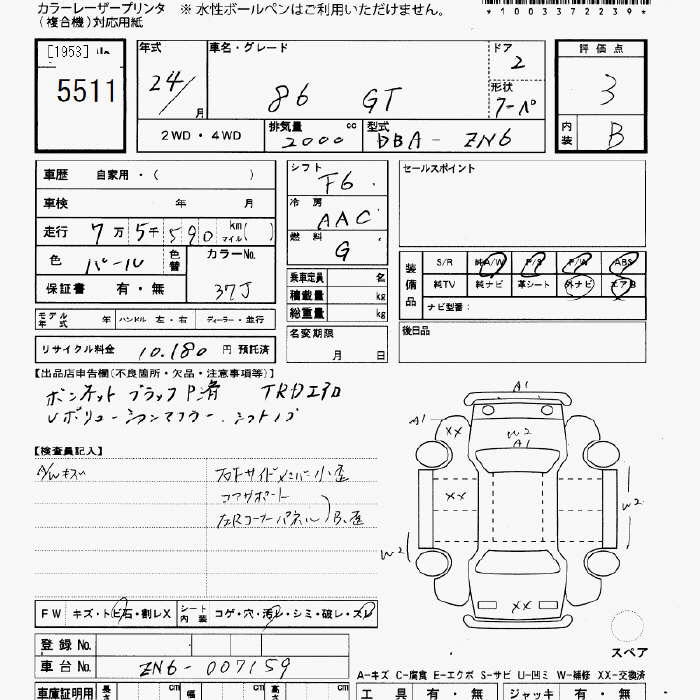 カラーレーザープリンタ ※ 水性ボールペンはご利用いただけません。
(複合機)対応用紙
*1003372239*
[1953]
5511
年式 車名・グレード ドア 評価点
24/ 月 86 GT 2 3
形状 クーペ
2WD・4WD 排気量 2000 cc 型式 DBA-ZN6 内装 B
車歴 自家用・( ) シフト F6 セールスポイント
車検 年 月 冷房 AAC
走行 7万5千590 km マイル( ) 燃料 G
色 パール 色替 カラーNo. 37J
保証書 有・無
乗車定員 名
積載量 kg
総重量 kg
装備品 S/R 純A/W P/S P/W ABS
純TV 純ナビ 革シート 外ナビ エアB
ナビ型番:
モデル年式 年 ハンドル 左・右 ディーラー・並行
名変期限 月 日
後日品
リサイクル料金 10.180 円 預託済
【出品店申告欄(不良箇所・欠品・注意事項等)】
ボンネットブラックP済 TRDエアロ
【検査員記入】
A/Wキズ
左右Fサイドメンバー小歪
コアサポート
左Rコーナーパネル)B.歪
A1
A1 XX W2
A1
XX W2
W2
XX
スペア
FW キズ・トビ石・割レX シート内装 コゲ・穴・汚レ・シミ・破レ・スレ
登録No.
車台No. ZN6-007159
A-キズ C-腐食 E-エクボ S-サビ U-凹ミ W-補修 XX-交換済
車庫証明用 長さ cm 幅 cm 高 cm 工具 有・無 ジャッキ 有・無